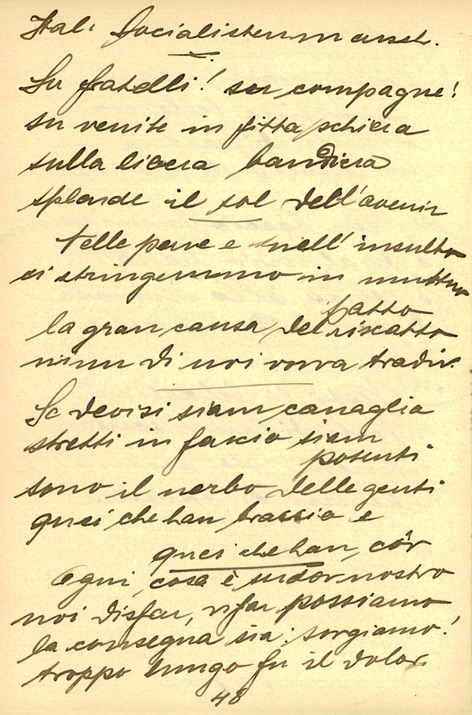 Ital: Socialistenmarsch.
Su fratelli! su, compagne!
su venite in fitta schiera
sulla libera bandiera
splende il sol dell'avenir
Nelle pene e nell'insulto
ci stringemmo in mutuo
patto
la gran causa del riscatto
niun di noi vorra tradir.
Se devisi siam, canaglia
stretti in fascio siam
potenti
sono il nerbo delle genti
quei che han braccio e
quei che han cor
Ogni cosa è sudor nostro
noi disfar, rifar possiamo
la consegna sia: sorgiamo!
troppo lungo fu il dolor.
48